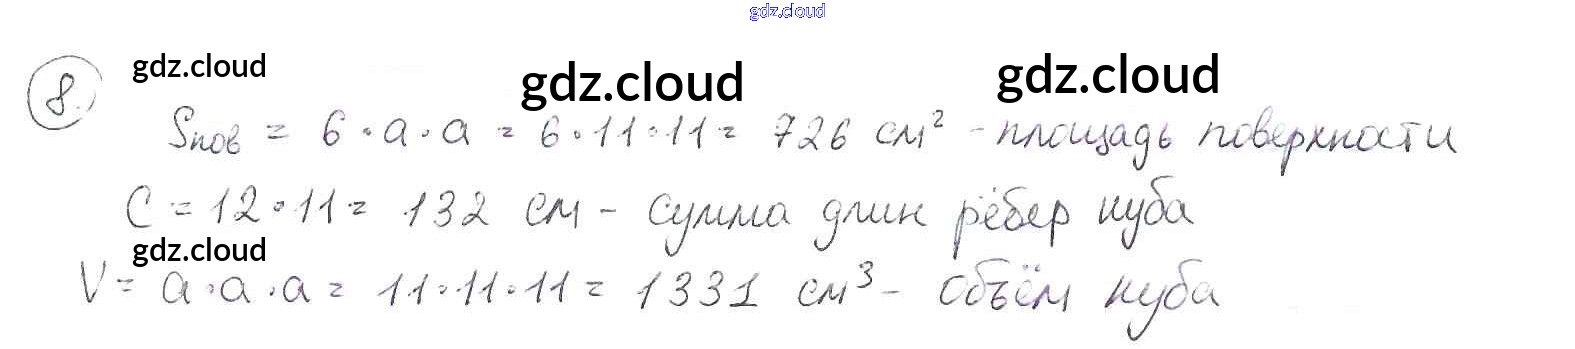 gdz.cloud
gdz.cloud gdz.cloud gdz.cloud
8. Sпов = 6 · a · a = 6 · 11 · 11 = 726 см² - площадь поверхности
C = 12 · 11 = 132 см - сумма длин рёбер куба
gdz.cloud
V = a · a · a = 11 · 11 · 11 = 1331 см³ - объём куба